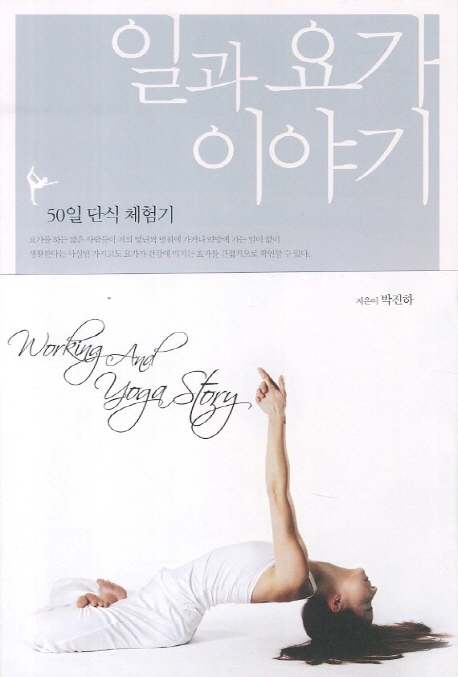 일과 요가
이야기
50일 단식 체험기
요가를 하는 많은 사람들이 거의 일년씩 병원에 가거나 약방에 가는 일이 없이
생활한다는 사실만 가지고도 요가가 건강에 미치는 효과를 간접적으로 확인할 수 있다.
지은이 박진하
Working And
Yoga Story